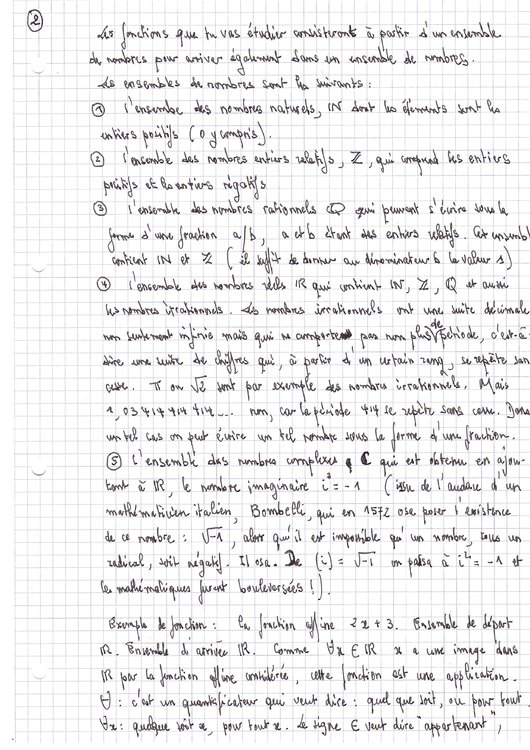 ②
Les fonctions que tu vas étudier consisteront à partir d'un ensemble
de nombres pour arriver également dans un ensemble de nombres.
Les ensembles de nombres sont les suivants :
① l'ensemble des nombres naturels, ℕ dont les éléments sont les
entiers positifs (0 y compris).
② l'ensemble des nombres entiers relatifs, ℤ, qui comprend les entiers
positifs et les entiers négatifs
③ l'ensemble des nombres rationnels ℚ qui peuvent s'écrire sous la
forme d'une fraction a/b, a et b étant des entiers relatifs. Cet ensembl
contient ℕ et ℤ (il suffit de donner au dénominateur b la valeur 1)
④ l'ensemble des nombres réels ℝ qui contient ℕ, ℤ, ℚ et aussi
les nombres irrationnels. Les nombres irrationnels ont une suite décimale
non seulement infinie mais qui ne comporte pas non plus de période, c'est-à-
dire une suite de chiffres qui, à partir d'un certain rang, se repète san
cesse. π ou √2 sont par exemple des nombres irrationnels. Mais
1,03 414 414 414... non, car la période 414 se repète sans cesse. Dans
un tel cas on peut écrire un tel nombre sous la forme d'une fraction.
⑤ L'ensemble des nombres complexes, ℂ qui est obtenu en ajou-
tant à ℝ, le nombre imaginaire i² = -1 (issu de l'audace d'un
mathématicien italien, Bombelli, qui en 1572 ose poser l'existence
de ce nombre : √-1, alors qu'il est impossible qu'un nombre, sous un
radical, soit négatif. Il osa. De (i) = √-1 on passa à i² = -1 et
les mathématiques furent bouleversées !).
Exemple de fonction : la fonction affine 2x + 3. Ensemble de départ
ℝ. Ensemble d'arrivée ℝ. Comme ∀x ∈ ℝ x a une image dans
ℝ par la fonction affine considérée, cette fonction est une application.
∀ : c'est un quantificateur qui veut dire : quel que soit, ou pour tout.
∀x : quelque soit x, pour tout x. Le signe ∈ veut dire "appartenant",